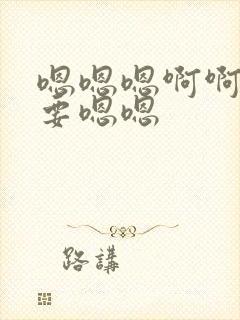 嗯嗯嗯啊啊
要嗯嗯
路講